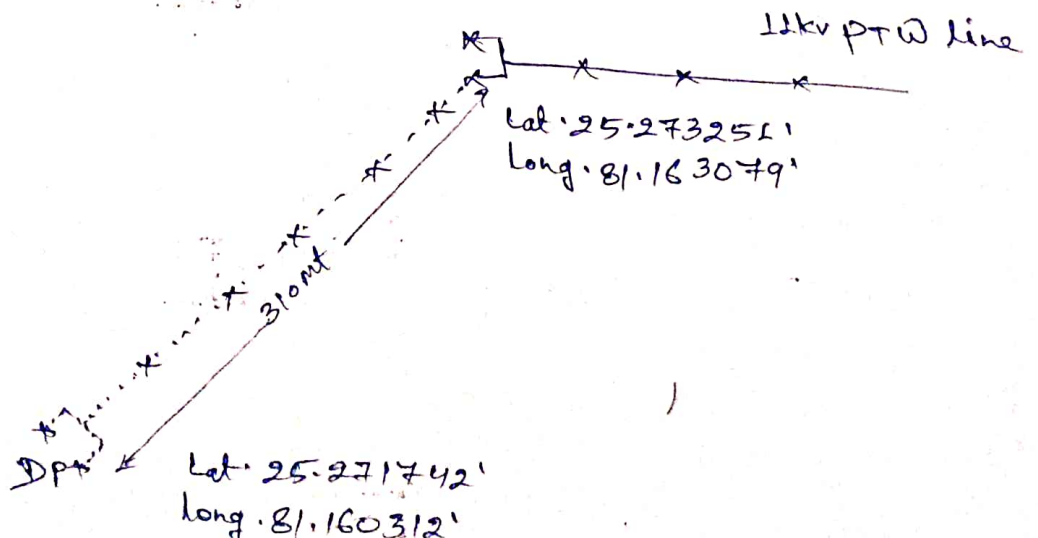 11kv PTW line
Lat. 25.273251'
Long. 81.163079'
310mt
DP
Lat. 25.271742'
long. 81.160312'